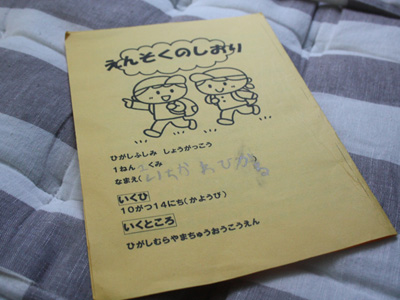 えんそくのしおり
ひがしふしみ しょうがっこう
1ねん 2くみ
なまえ( )
いくひ
10がつ14にち(かようび)
いくところ
ひがしむらやまちゅうおうこうえん